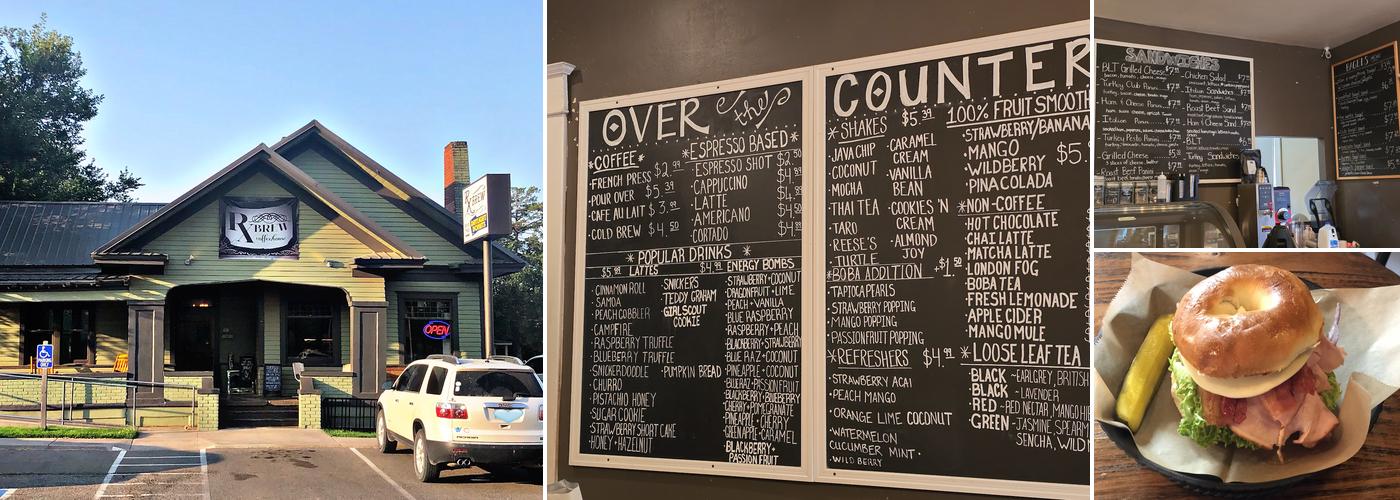 RX BREW
coffeehouse
RX
BREW
OPEN
PARKING
ONLY
OVER the COUNTER
*COFFEE*
FRENCH PRESS $2.99
POUR OVER $5.39
CAFE AU LAIT $3.99
COLD BREW $4.50
*ESPRESSO BASED*
ESPRESSO SHOT $2.50
CAPPUCCINO
LATTE
AMERICANO $4.50
CORTADO
* POPULAR DRINKS *
$5.99 LATTES
CINNAMON ROLL
SAMOA
PEACH COBBLER
CAMPFIRE
RASPBERRY TRUFFLE
BLUEBERRY TRUFFLE
SNICKERDOODLE
CHURRO
PISTACHIO HONEY
SUGAR COOKIE
STRAWBERRY SHORT CAKE
HONEY • HAZELNUT
SNICKERS
TEDDY GRAHAM
GIRL SCOUT
COOKIE
PUMPKIN BREAD
$4.99 ENERGY BOMBS
STRAWBERRY•COCONUT
DRAGONFRUIT•LIME
PEACH•VANILLA
BLUE RASPBERRY
RASPBERRY•PEACH
BLACKBERRY•STRAWBERRY
BLUE RAZ•COCONUT
PINEAPPLE•COCONUT
BLUERAZ•PASSIONFRUIT
BLACKBERRY•BLUEBERRY
CHERRY•POMEGRANATE
PINEAPPLE•CHERRY
GREEN APPLE•CARAMEL
BLACKBERRY•
PASSION FRUIT
*SHAKES $5.99
JAVA CHIP
COCONUT
MOCHA
THAI TEA
TARO
REESE'S
TURTLE
CARAMEL
CREAM
VANILLA
BEAN
COOKIES 'N
CREAM
ALMOND
JOY
*BOBA ADDITION +$1.50
TAPIOCA PEARLS
STRAWBERRY POPPING
MANGO POPPING
PASSIONFRUIT POPPING
*REFRESHERS $4.99
STRAWBERRY ACAI
PEACH MANGO
ORANGE LIME COCONUT
WATERMELON
CUCUMBER MINT
WILD BERRY
100% FRUIT SMOOTH
STRAWBERRY/BANANA
MANGO $5.
WILDBERRY
PINA COLADA
*NON-COFFEE
HOT CHOCOLATE
CHAI LATTE
MATCHA LATTE
LONDON FOG
BOBA TEA
FRESH LEMONADE
APPLE CIDER
MANGO MULE
*LOOSE LEAF TEA
BLACK ~ EARLGREY, BRITISH
BLACK ~ LAVENDER
RED ~ RED NECTAR, MANGO HI
GREEN ~ JASMINE, SPEARM
SENCHA, WILD
SANDWICHES
BLT Grilled Cheese
bacon, tomato, cheese, mayo
Turkey Club Panini
Ham & Cheese Panini
Italian Panini
Turkey Pesto Panini
Grilled Cheese
3 slices of cheese, butter
Roast Beef Panini
Chicken Salad
Italian Sandwiches
Roast Beef Sand
Ham & Cheese Sand
BLT
Turkey Sandwiches
BAGELS